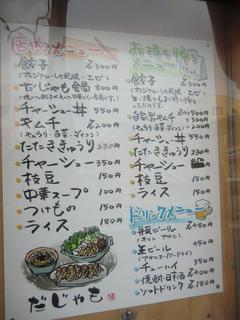 店内メニュー
餃子 各300円
(オリジナル・しそ風味・エビ)
だじゃも定食 800円
チャーシュー丼 550円
キムチ 各200円
(きゅうり・白菜・ダイコン)
たたききゅうり 230円
チャーシュー 350円
枝豆 150円
中華スープ 100円
つけもの 150円
ライス 180円
だじゃも
お持ち帰り
メニュー
餃子
(オリジナル・しそ風味・エビ)
各300円
自家製キムチ 各500円
(きゅうり・白菜・ダイコン)
チャーシュー丼 550円
たたききゅうり 230円
チャーシュー
枝豆 150円
ライス 150円
ドリンクメニュー
瓶ビール 各480円
(キリン・アサヒ)
生ビール 450円
(アサヒスーパードライ)
チューハイ 350円
焼酎・日本酒 各400円
ソフトドリンク 各180円